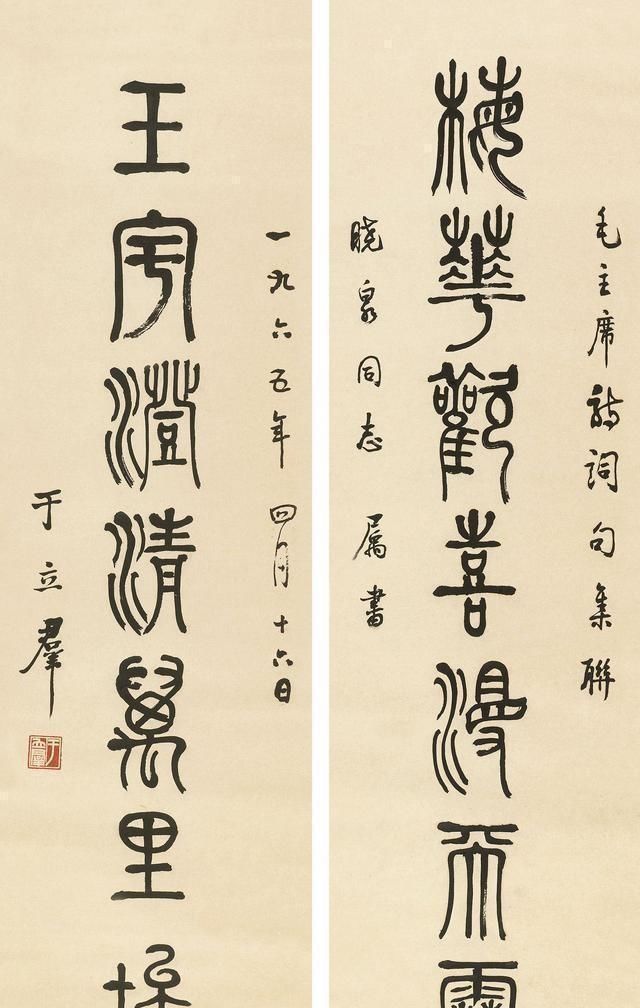 毛主席詩詞句集聯
梅華歡喜漫天
晓泉同志 属書
一九六五年四月十六日
玉宇澄清萬里
于立羣